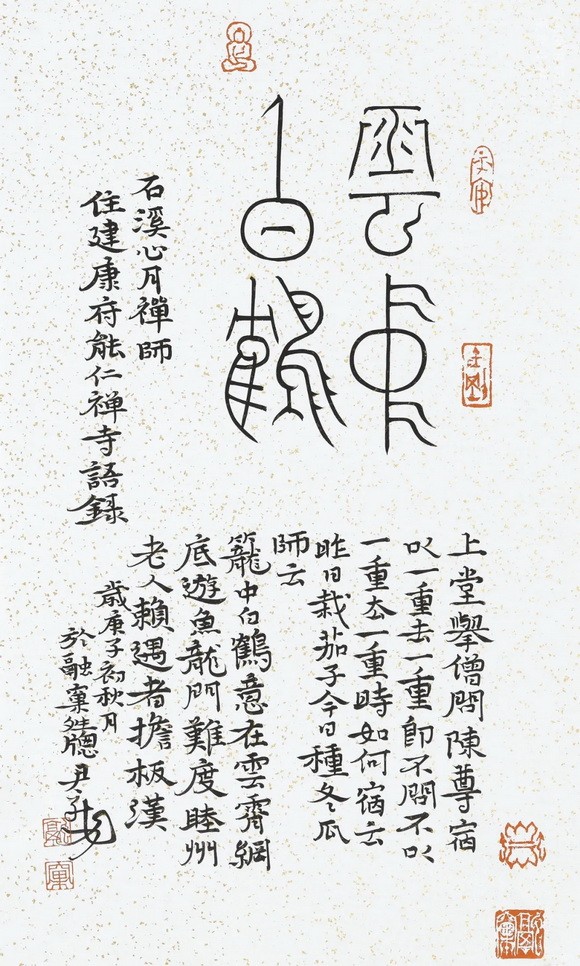 雲中
白鶴
石溪心月禪師
住建康府能仁禅寺語録
上堂舉僧問陳尊宿
以一重去一重即不問不以
一重去一重時如何宿云
昨日栽茄子今日種冬瓜
師云
籠中白鶴意在雲霄網
底遊魚龍門難度睦州
老人賴遇者擔板漢
歲庚子初秋月
於融窠牕尹子